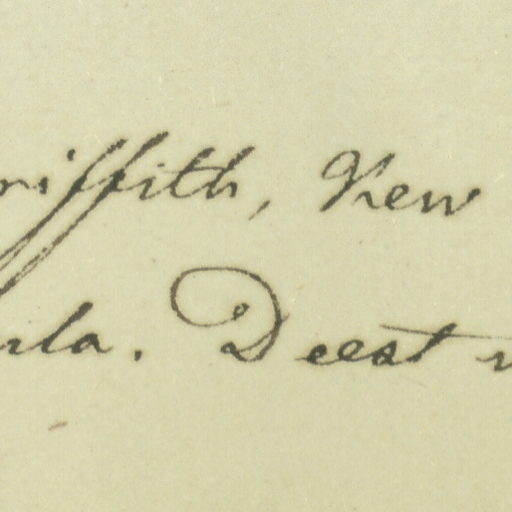 riffith, New
ula. Deest